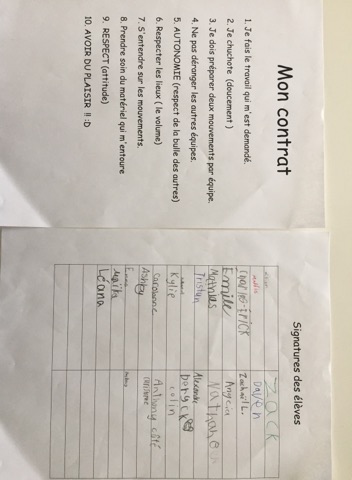 Mon contrat
1. Je fais le travail qui m'est demandé.
2. Je chuchote (doucement )
3. Je dois préparer deux mouvements par équipe.
4. Ne pas déranger les autres équipes.
5. AUTONOMIE (respect de la bulle des autres)
6. Respecter les lieux ( le volume)
7. S'entendre sur les mouvements.
8. Prendre soin du matériel qui m'entoure
9. RESPECT (attitude)
10. AVOIR DU PLAISIR !! :D
Signatures des élèves
ZACK
Zachai L.
Emile
Mathias
Nathan
Tristan
Alexandre
Kylie
colin
Caroanne
Anthony côté
Ashley
Léana